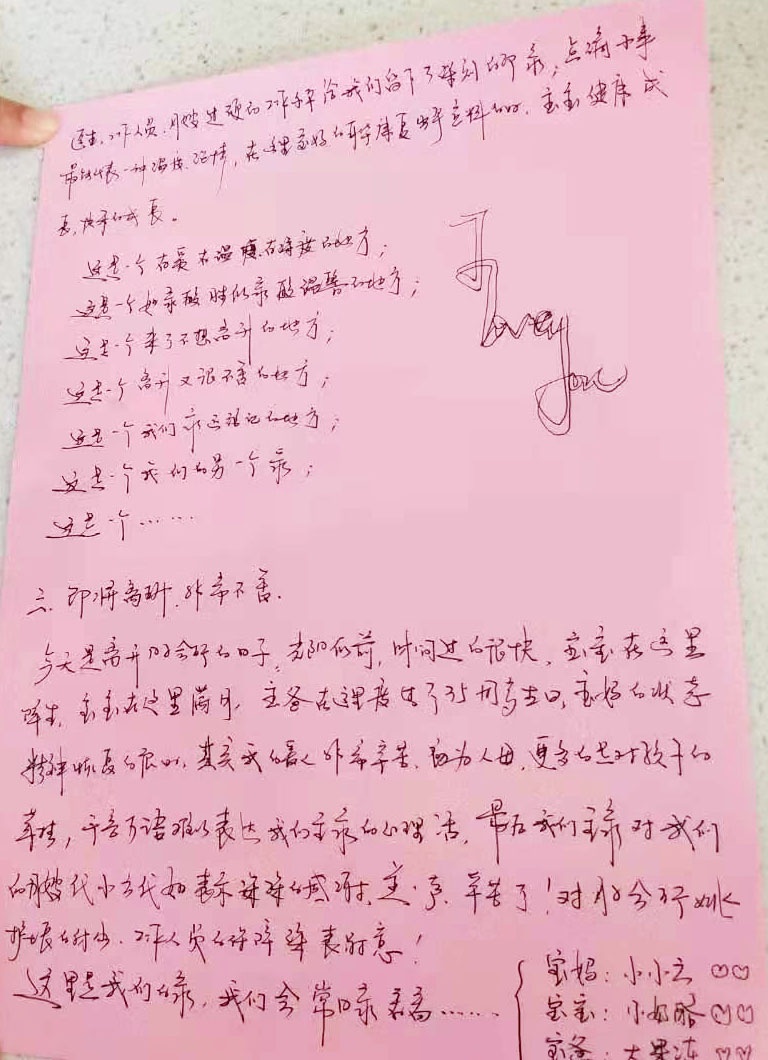 医生、工作人员、月嫂过硬的工作水平给我们留下了深刻的印象；点滴小事
最能代表一种温度、温情，在这里宝妈的身体康复出乎意料的好，宝宝健康成
长，快乐的成长。
这是一个有爱有温暖有温度的地方；
这是一个如家般胜似家般温馨的地方；
这是一个来了不想离开的地方；
这是一个离开又很不舍的地方；
这是一个我们永远难忘的地方；
这是一个我们的另一个家；
这是一个……
I
Love
you
三、即将离开，非常不舍。
今天是离开月子会所的日子，光阴似箭，时间过的很快，宝宝在这里
降生，宝宝在这里满月，宝爸在这里度过了35周岁生日，宝妈的状态
精神恢复的很好，其实我的爱人非常辛苦，初为人母，更多的是对孩子的
牵挂，千言万语难以表达我们全家的心理话，最后我们全家对我们
的月嫂代小云代如表示深深的感谢，道一声，辛苦了！对月子会所
护士、工作人员的辛勤表谢意！
这里是我们的家，我们会常回家看看……
宝妈：小小云
宝宝：小奶酪
宝爸：大果冻